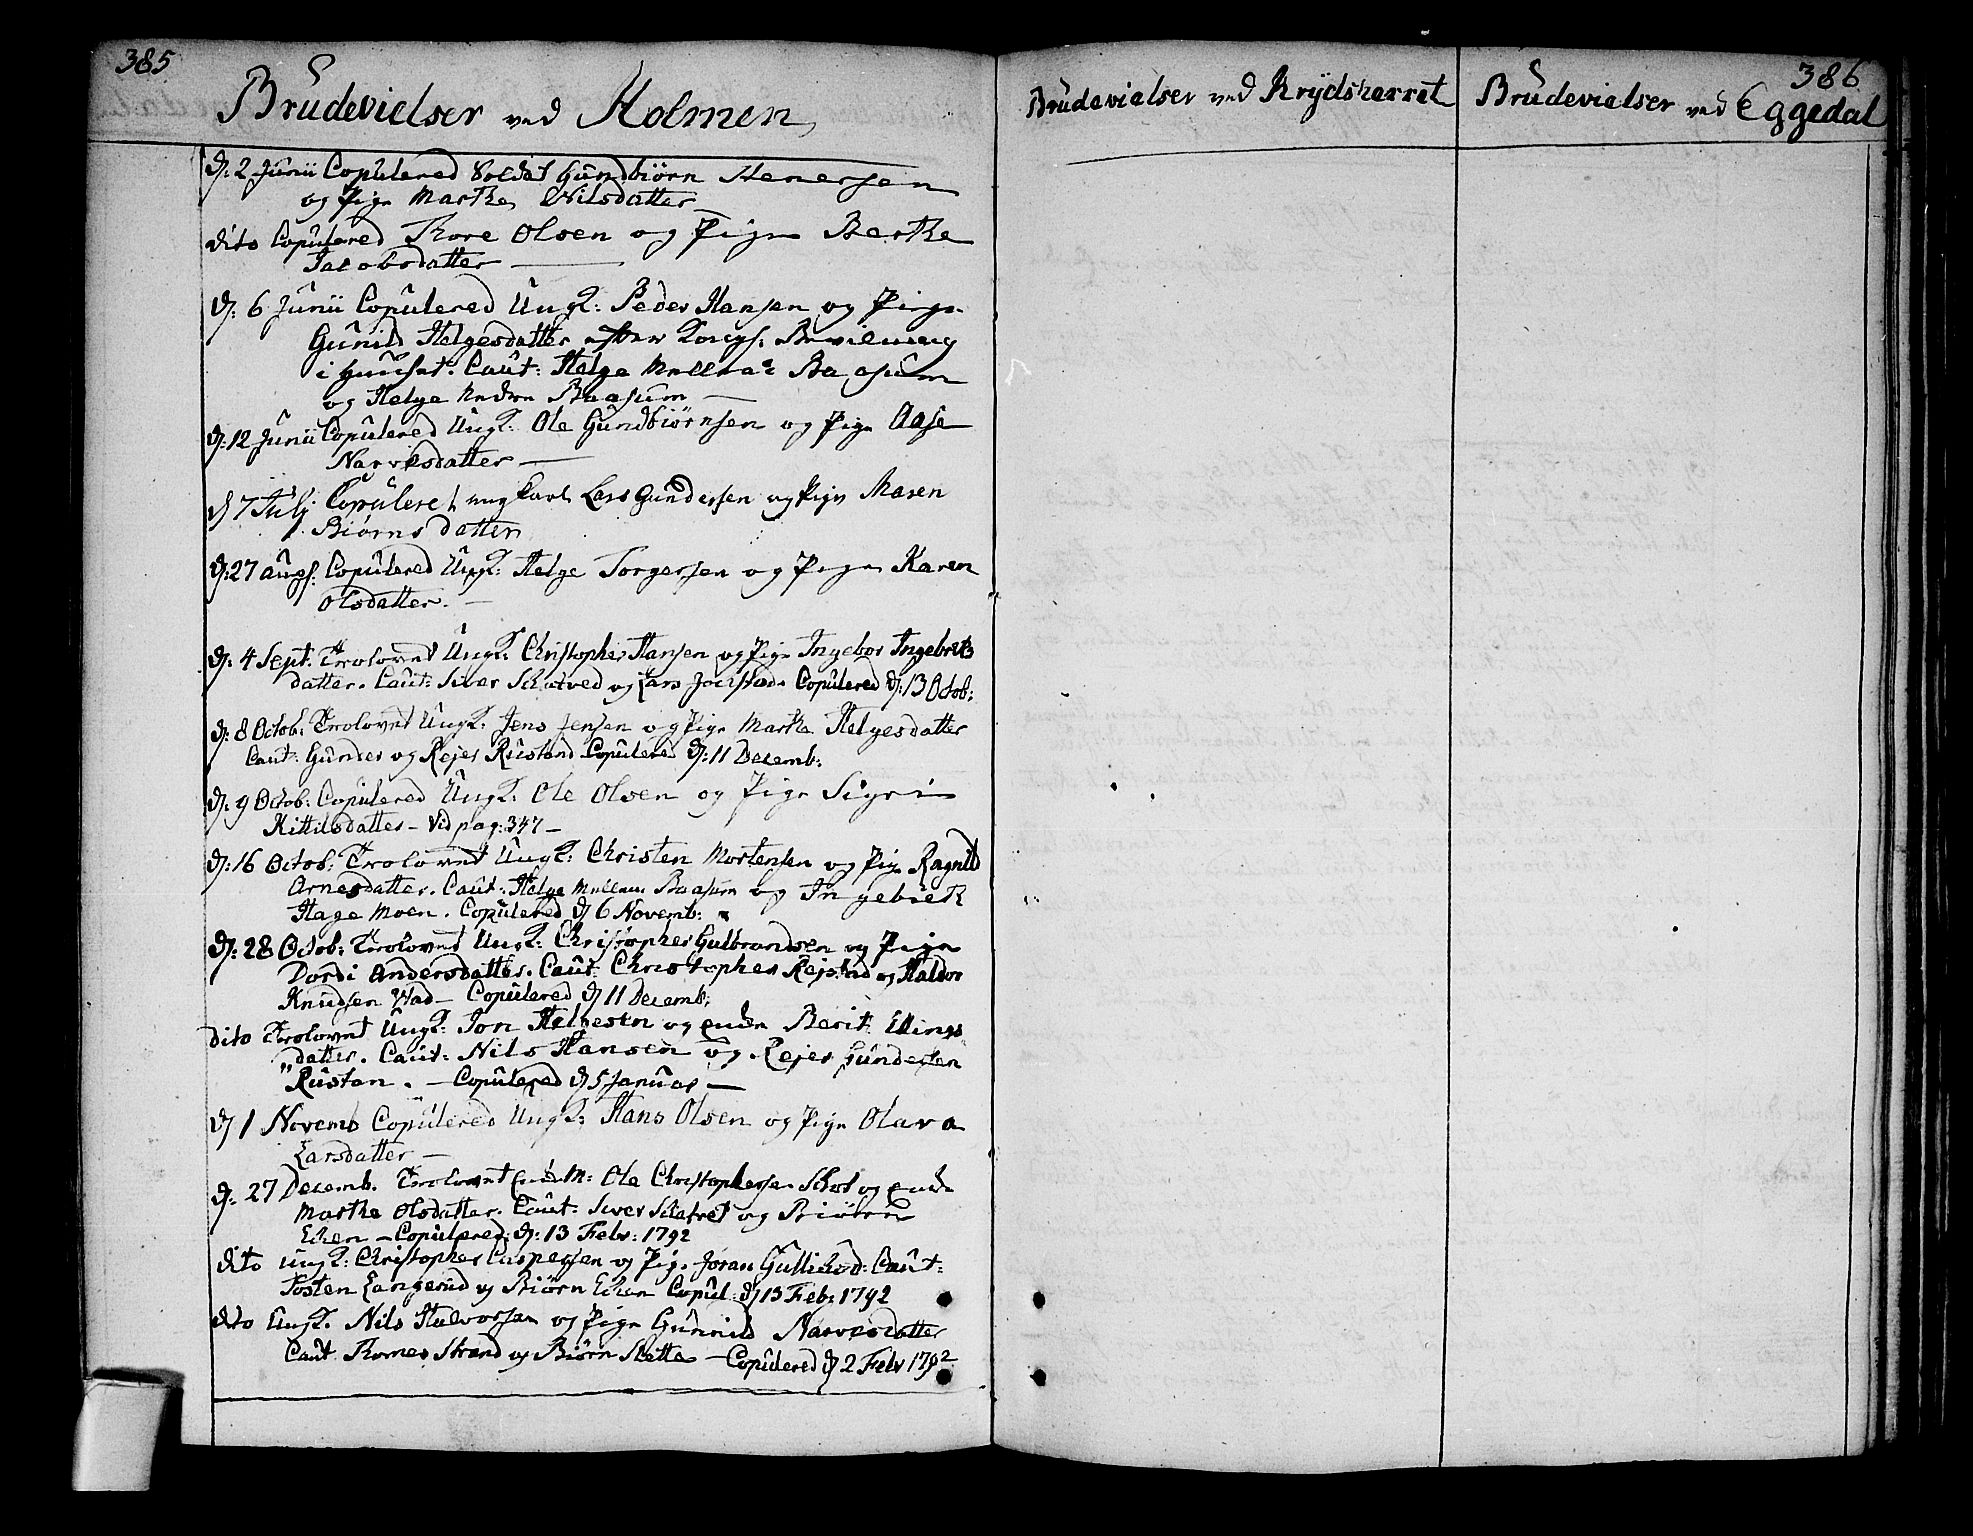 385
Brudevielser ved Holmen
d: 2 Junii Copulered Soldat Gundbiørn
og Pige Marthe Nilsdatter
dito Copulered Thore Olsen og Pige Berthe
Jacobsdatter
d: 6 Junii Copulered Ungk: Peder Hansen og Pige
Gunild Helgesdatter efter Kongs: Bevilning
i Huuset. Caut: Helge Mellem Baasum
og Helge Nedre Baasum
d: 12 Junii Copulered Ungk: Ole Gundbiørnsen og Pige Aase
Narvesdatter
d 7 Julj Copuleret ung karl Lars Gundersen og Pige Maren
Biørnsdatter
d: 27 Augs: Copulered Ungk: Helge Torgersen og Pige Karen
Olsdatter.
d: 4 Sept: Trolovet Ungk: Christopher Hansen og Pige Ingebor Ingebrets
datter. Caut: Siver Schatved og Lars Copulered d: 13 Octob:
d: 8 Octob: Trolovet Ungk: Jens Jensen og Pige Marthe Helgesdatter
Caut: Gunder og Rejer Rustand Copulered d: 11 Decemb:
d: 9 Octob: Copulered Ungk: Ole Olsen og Pige Sigri
Kittilsdatter – Vid pag: 347 –
d: 16 Octob: Trolovet Ungk: Christen Mortensen og Pige Ragnild
Arnesdatter. Caut: Helge Mellem Baasum og Ingebrek
Hage Moen. Copulered d 6 Novemb:
d: 28 Octob: Trolovet Ungk: Christopher Gulbrandsen og Pige
Dordi Andersdatter. Caut: Christopher Rejstad og Haldor
Knudsen Wad – Copulered d 11 Decemb:
dito Trolovet Ungk: Jon Helgesen og enke Berit Ellings
datter. Caut: Nils Hansen og Rejer Gundersen
Rustan. – Copulered d 5 Januar –
d 1 Novemb Copulered Ungk: Hans Olsen og Pige Olava
Larsdatter –
d: 27 Decemb. Trolovet Enkem: Ole Christophersen og enke
Marthe Olsdatter. Caut: Siver Schatvet og Biørn
Eken – Copulered: d: 13 Febr: 1792
dito ungk: Christopher Caspersen og Pig. Joran Gullichsd: Caut:
Tosten Langerud og Biørn Eken Copul: d 13 Feb: 1792
dito Ungk. Nils Halvorsen og Pige Gunnild Narvesdatter
Caut Thomes Strand og Biørn Slette – Copulered d 2 Febr 1792
Brudevielser ved Krydsherret
386
Brudevielser ved Eggedal